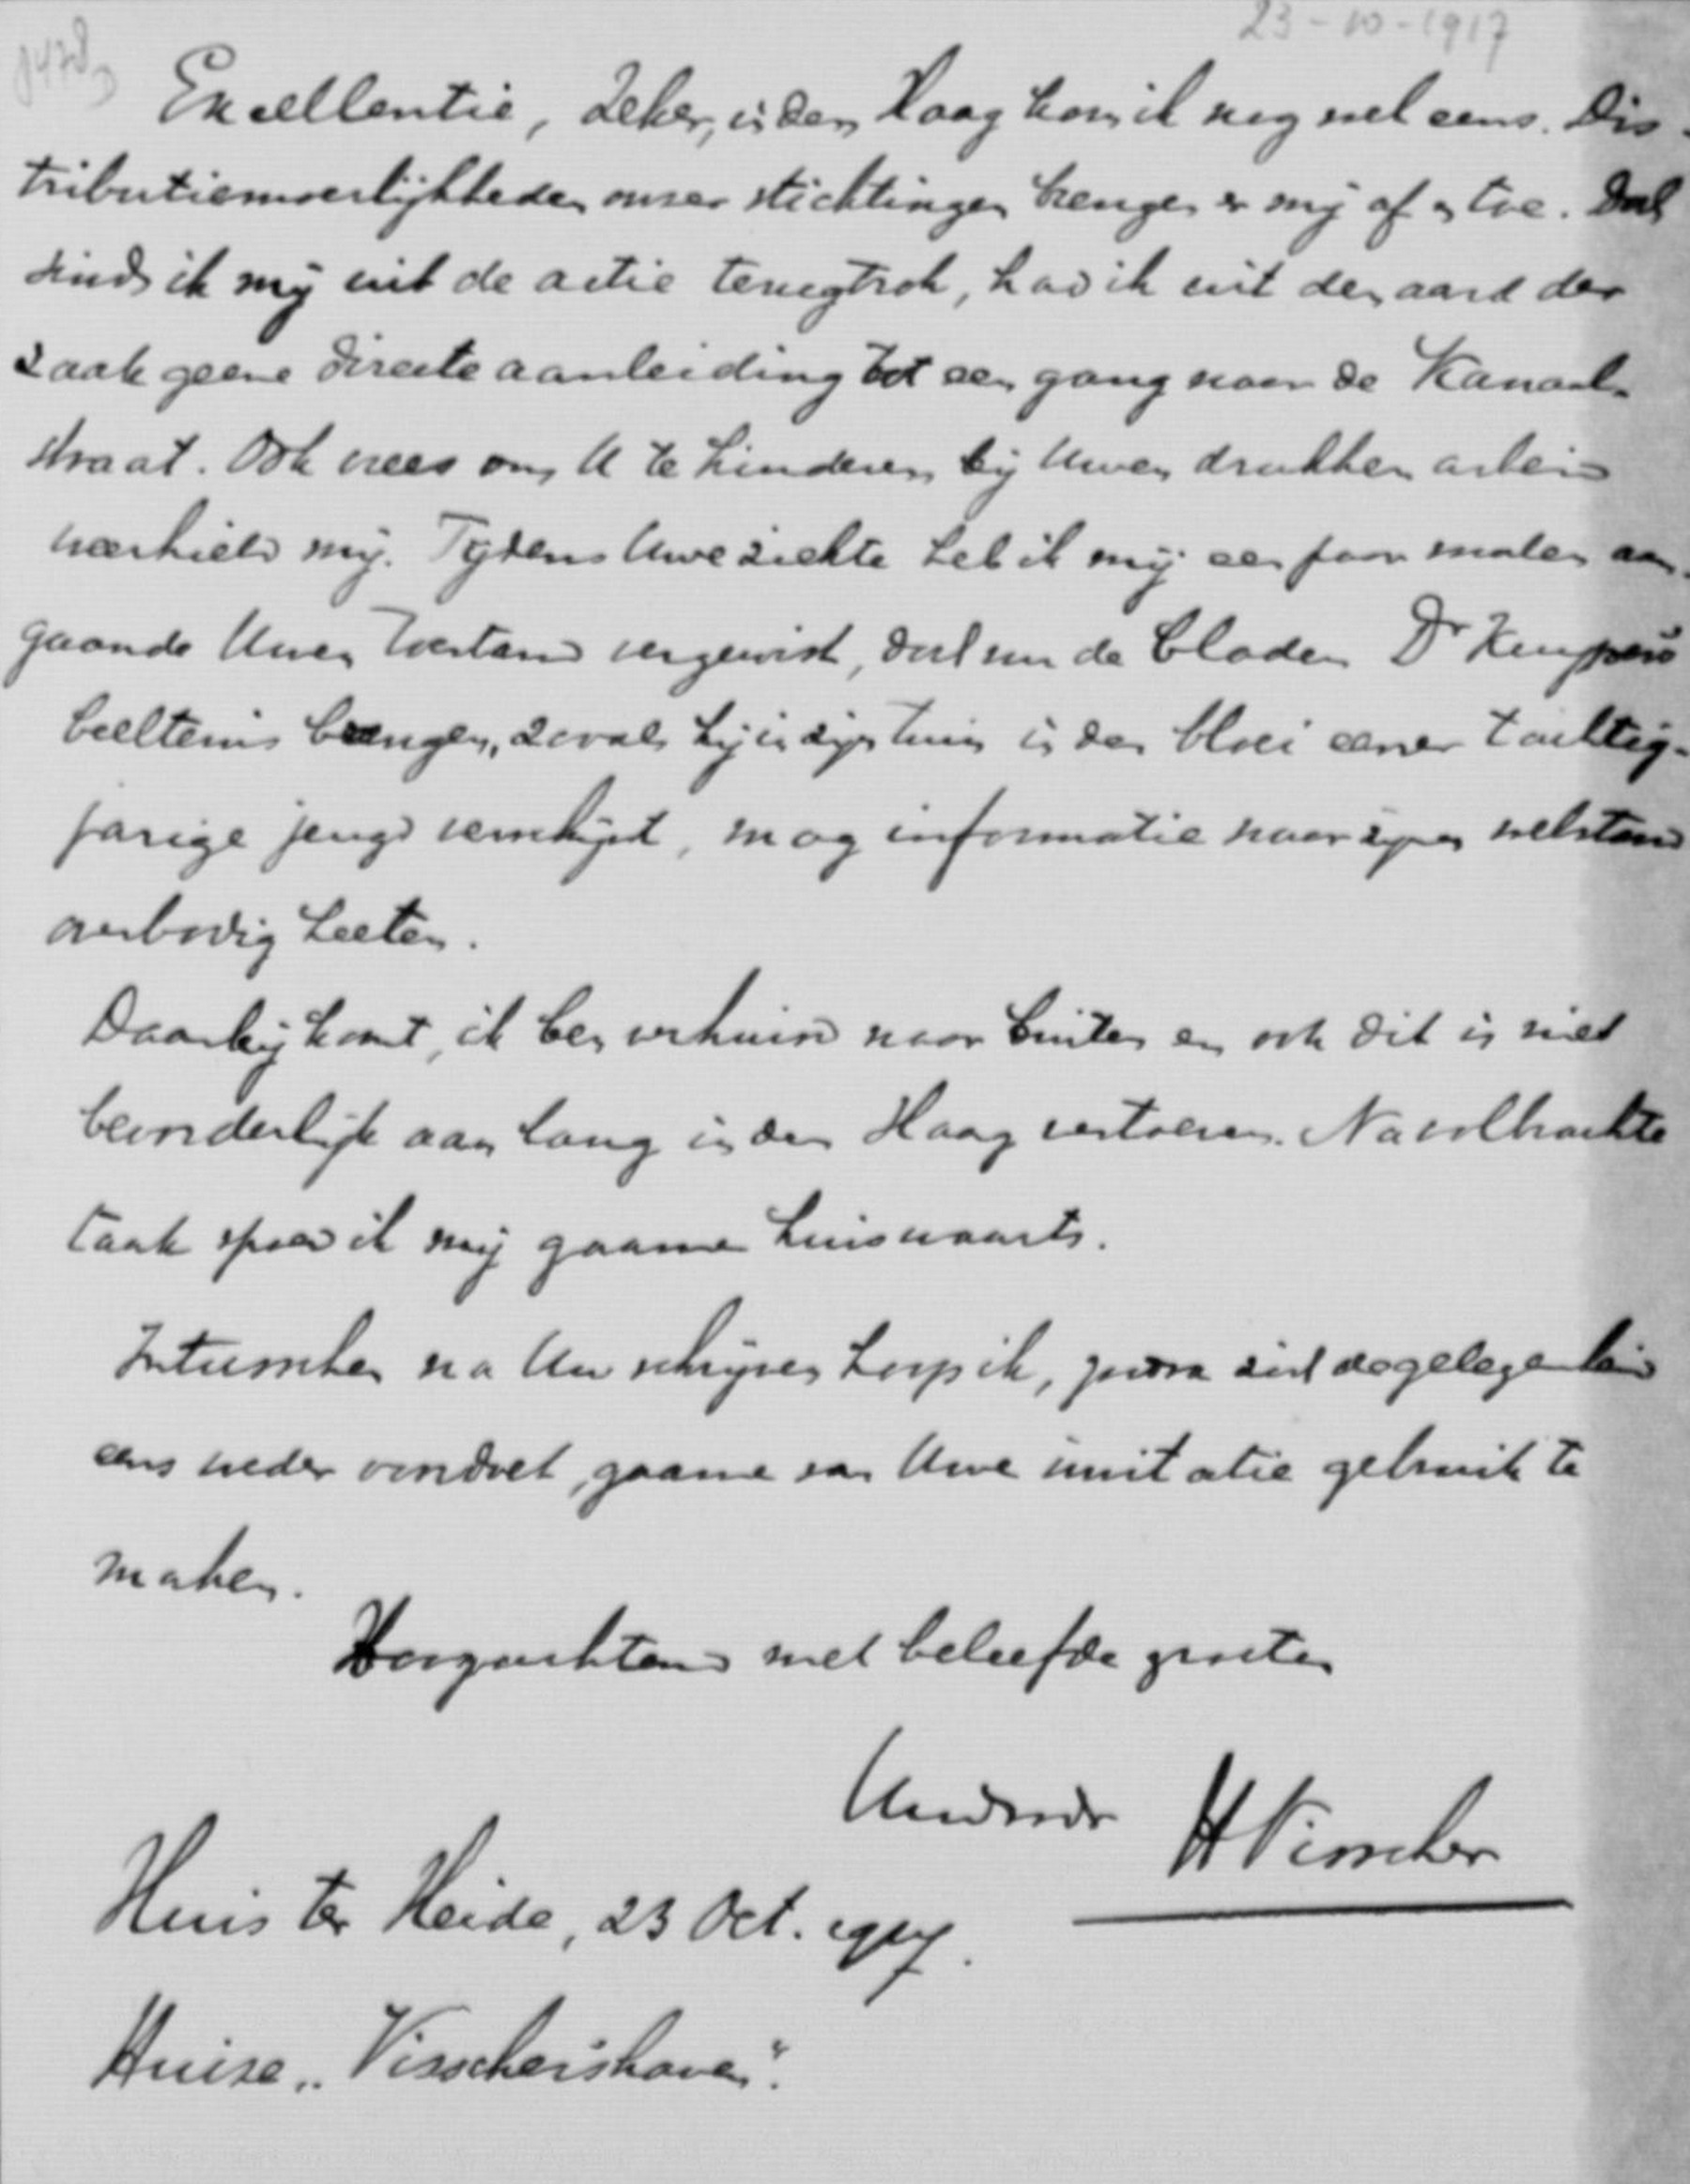 23-10-1917
Excellentie, Zeker, in den Haag kom ik nog wel eens. Dis-
tributiemoeilijkheden onzer stichtingen brengen er mij af en toe. Doch
sinds ik mij uit de actie terugtrok, had ik uit den aard der
zaak geene directe aanleiding tot een gang naar de Kanaal-
straat. Ook vrees om U te hinderen bij Uwen drukken arbeid
weerhield mij. Tijdens Uwe ziekte heb ik mij een paar malen aan-
gaande Uwen toestand vergewist, doch nu de bladen Dr Kuypers
beeltenis brengen, zooals hij in zijn tuin in den bloei eener tachtig-
jarige jeugd verschijnt, mag informatie naar zijnen welstand
overbodig heeten.
Daarbij komt, ik ben verhuisd naar buiten en ook dit is niet
bevorderlijk aan lang in den Haag vertoeven. Na volbrachte
taak spoed ik mij gaarne huiswaarts.
Intusschen na Uw schrijven hoop ik, zich de gelegenheid
eens weder voordoet, gaarne van Uwe invitatie gebruik te
maken.
Hoogachtend met beleefde groeten
Uwdwdr HVisscher
Huis ter Heide, 23 Oct. 1917.
Huize „Visschershoven".